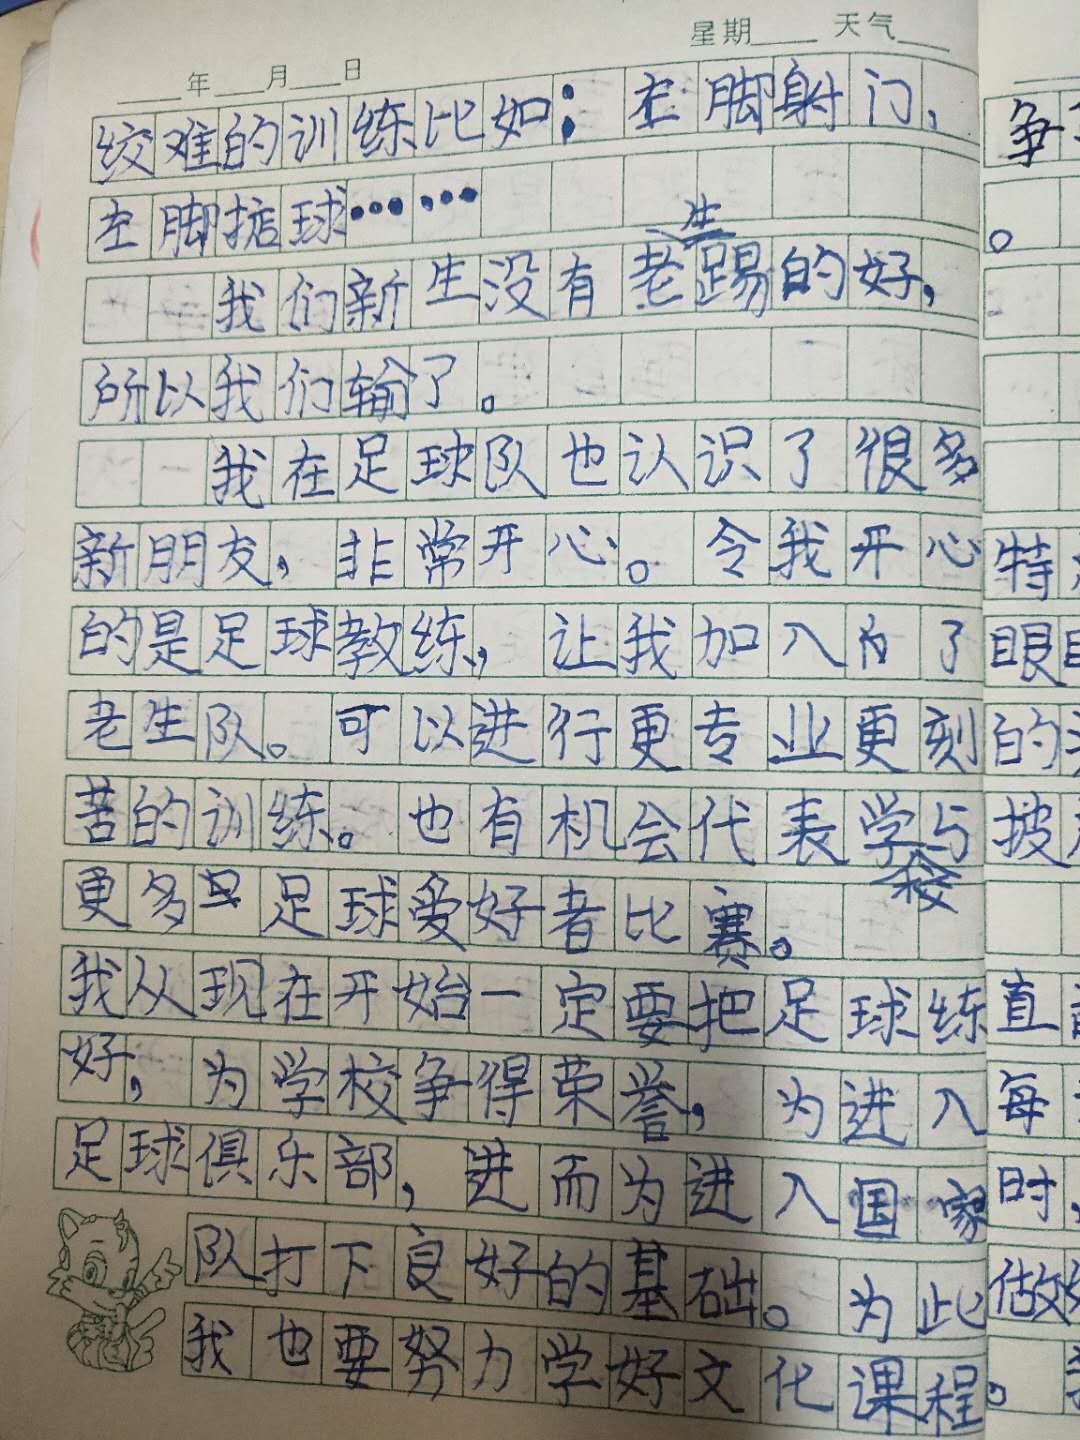 年 月 日 星期 天气
较难的训练比如：左脚射门，
左脚掂球……
我们新生没有老生踢的好，
所以我们输了。
我在足球队也认识了很多
新朋友，非常开心。令我开心
的是足球教练，让我加入了
老生队。可以进行更专业更刻
苦的训练。也有机会代表学校与
更多足球爱好者比赛。
我从现在开始一定要把足球练
好，为学校争得荣誉，为进入
足球俱乐部，进而为进入国家
队打下良好的基础。为此
我也要努力学好文化课程。
争
。
特
眼
的
披
直
每
时，
做